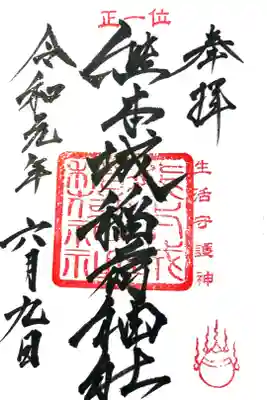 正一位
奉拝
生活守護神
熊本城稲荷神社
令和元年
六月九日